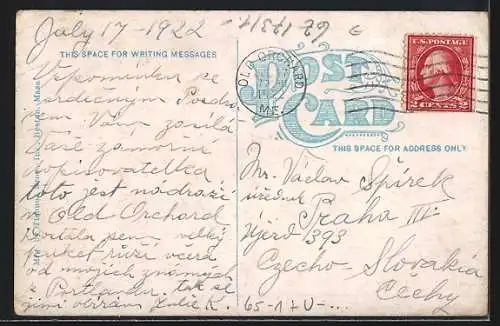 July 17 - 1922
THIS SPACE FOR WRITING MESSAGES
Vzpomínku se
srdečným Pozdra
vem Vám zasílá
Vaše zámořní
dopisovatelka
toto jest nádraží
v Old Orchard
dostala jsem velký
puket růží včera
od mojich známých
z Portlandu. tak se
jimi obírám Julie K.
OLD ORCHARD
ME.
POST
CARD
U.S. POSTAGE
2 CENTS 2
THIS SPACE FOR ADDRESS ONLY
Mr. Václav Špírek
úředník
Praha III
Újezd 1393
Czecho-Slovakia
Čechy
65-1+U-...